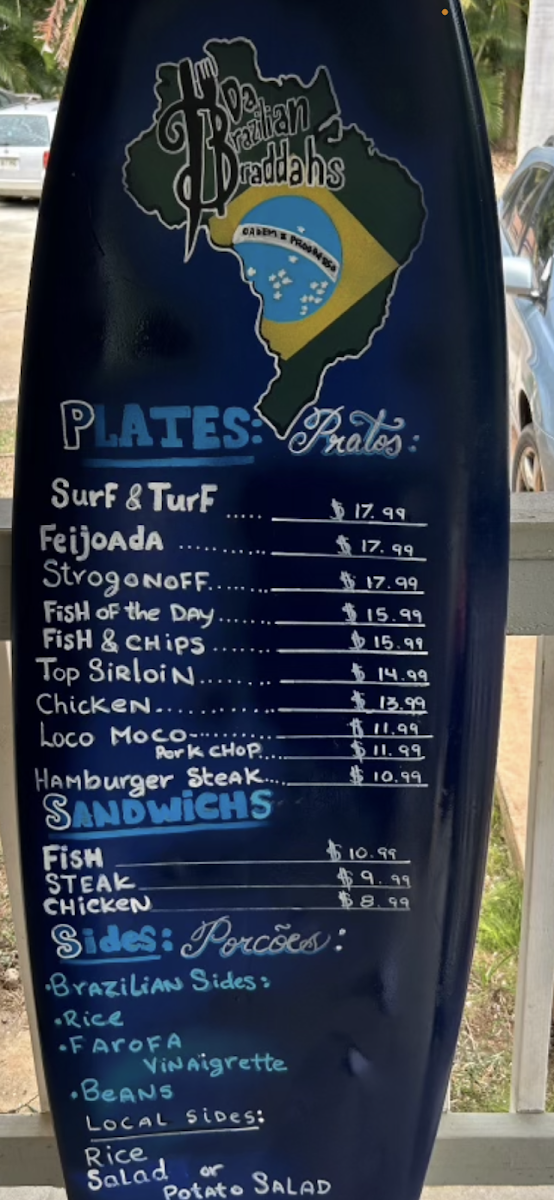 Da
Brazilian
Braddahs
ORDEM E PROGRESSO
PLATES: Pratos:
Surf & Turf ..... $ 17.99
Feijoada .......... $ 17.99
Strogonoff....... $ 17.99
Fish of the Day....... $ 15.99
Fish & Chips ........ $ 15.99
Top Sirloin....... $ 14.99
Chicken............ $ 13.99
Loco Moco........ $ 11.99
Pork Chop.... $ 11.99
Hamburger Steak.... $ 10.99
SANDWiCHS
FisH $ 10.99
STEAK $ 9.99
CHiCKEN $ 8.99
Sides: Porcões:
•Brazilian Sides:
•Rice
•Farofa
Vinaigrette
•Beans
Local Sides:
Rice
Salad or
Potato Salad